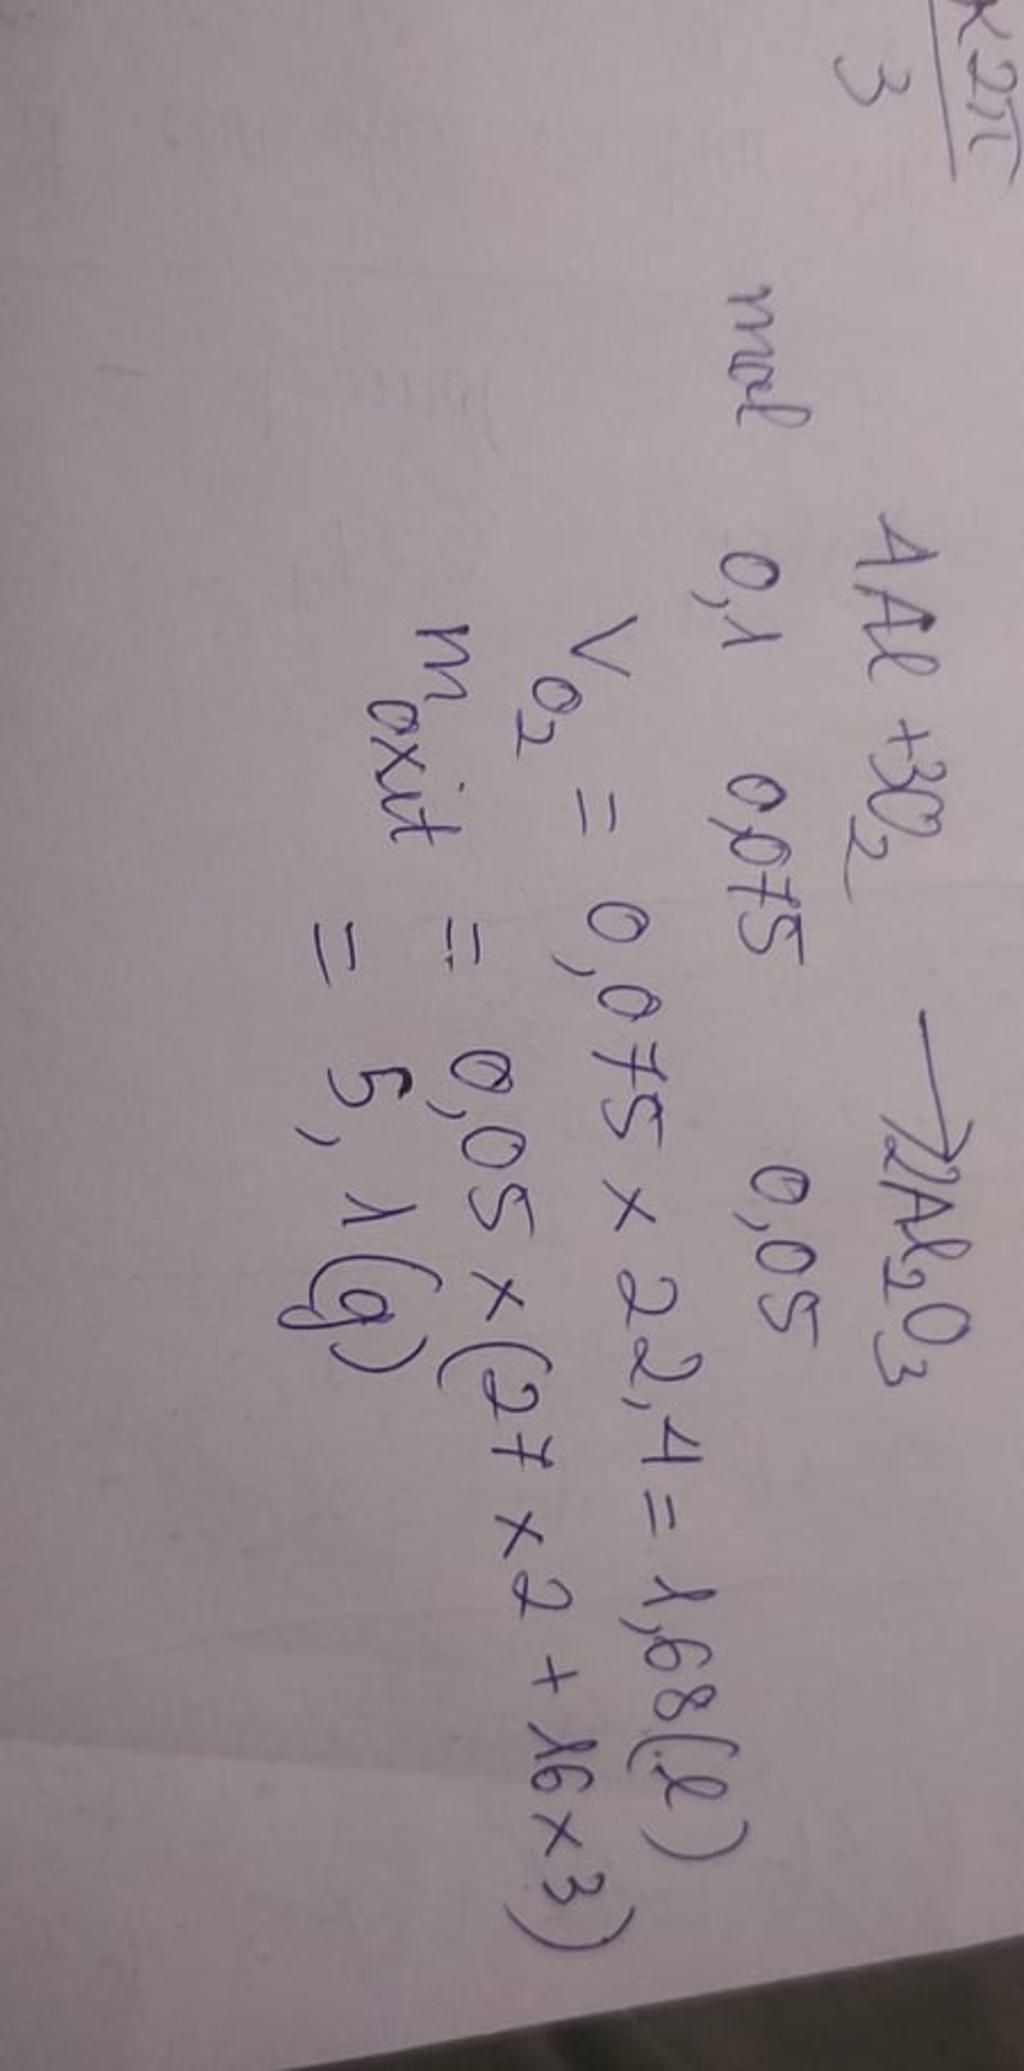 x2π
3
4Al + 3O₂ → 2Al₂O₃
mol 0,1 0,075 0,05
V O₂ = 0,075 x 22,4 = 1,68(l)
m oxit = 0,05 x (27 x 2 + 16 x 3)
= 5,1(g)